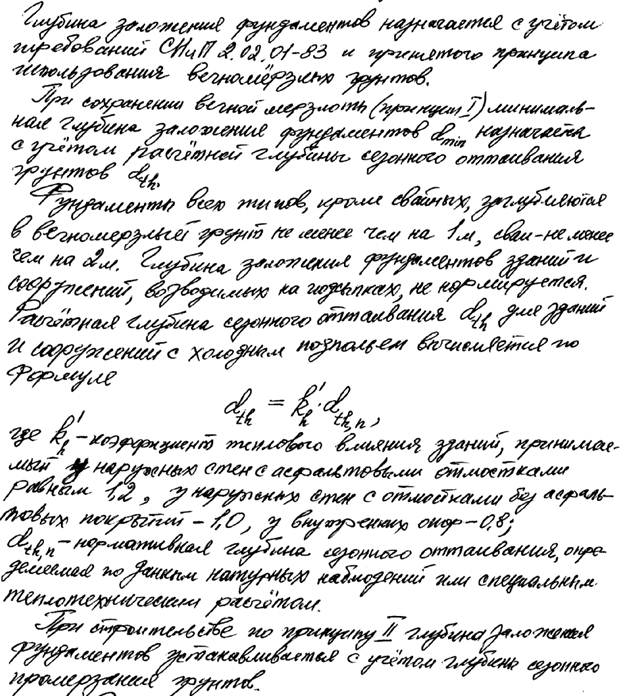 Глубина заложения фундаментов назначается с учётом
требований СНиП 2.02.01-83 и принятого принципа
использования вечномёрзлых грунтов.
При сохранении вечной мерзлоты (принцип I) минималь-
ная глубина заложения фундаментов d_min назначается
с учётом расчётной глубины сезонного оттаивания
грунтов d_th.
Фундаменты всех типов, кроме свайных, заглубляются
в вечномерзлый грунт не менее чем на 1м, сваи-не менее
чем на 2м. Глубина заложения фундаментов зданий и
сооружений, возводимых на подсыпках, не нормируется.
Расчётная глубина сезонного оттаивания d_th для зданий
и сооружений с холодным подпольем вычисляется по
формуле
d_th = k'_h · d_th,n,
где k'_h - коэффициент теплового влияния зданий, принимае-
мый у наружных стен с асфальтовыми отмостками
равным 1,2, у наружных стен с отмостками без асфаль-
товых покрытий - 1,0, у внутренних опор - 0,8;
d_th,n - нормативная глубина сезонного оттаивания, опре-
деляемая по данным натурных наблюдений или специальным
теплотехническим расчётом.
При строительстве по принципу II глубина заложения
фундаментов устанавливается с учётом глубины сезонного
промерзания грунтов.